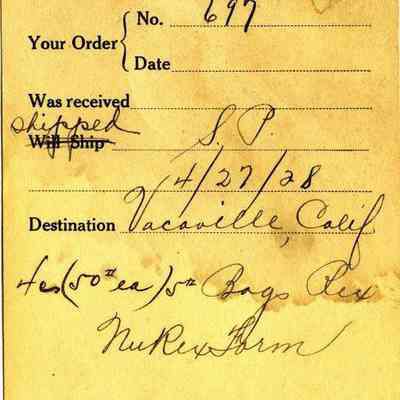 No. 697
Your Order
Date
Was received
shipped
Will Ship S. P.
4/27/28
Destination Vacaville, Calif
4cs (50# ea) 5# Bags Rex
NuRexForm